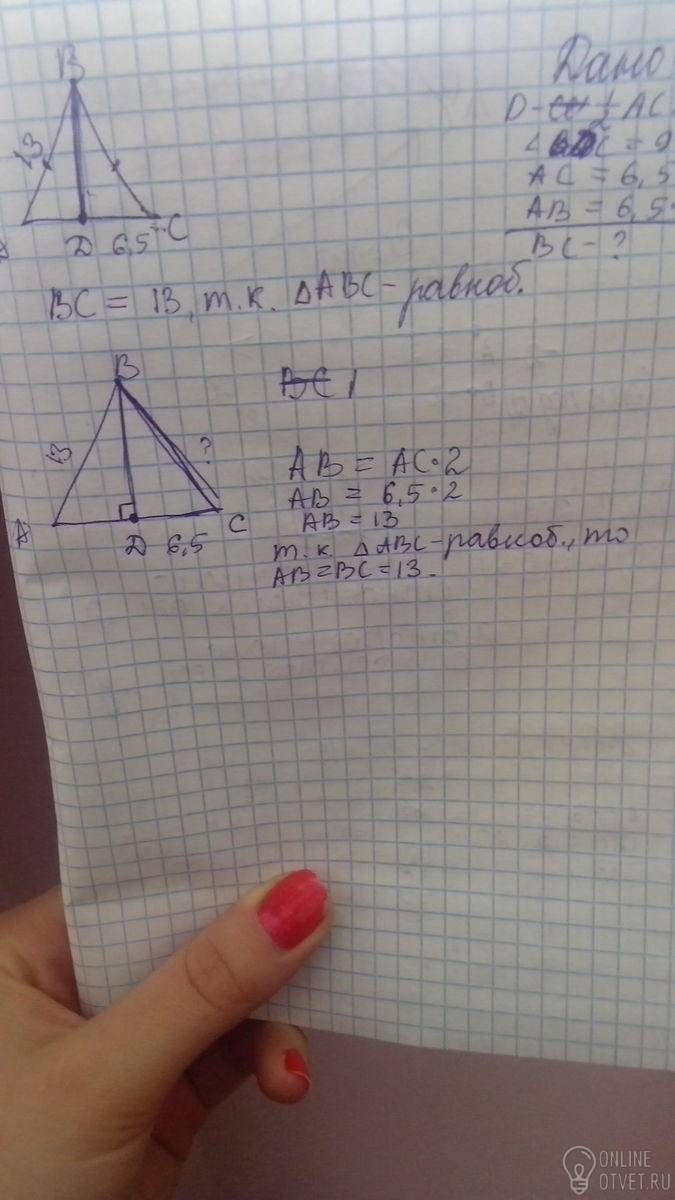 B
13
D 6,5 C
Дано
D - 1/2 AC
∠ C = 9
AC = 6,5
AB = 6,5 ·
BC - ?
BC = 13, т.к. ΔABC - равноб.
B
13 ?
A D 6,5 C
BC
AB = AC · 2
AB = 6,5 · 2
AB = 13
т.к. ΔABC - равноб., то
AB = BC = 13.
ONLINE
OTVET.RU